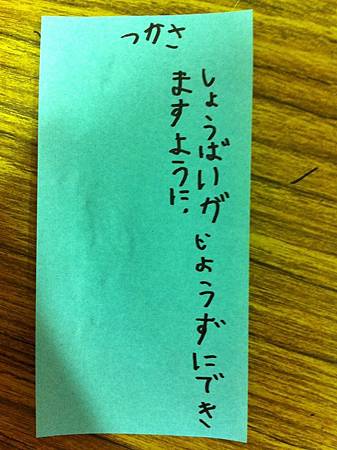 つかさ
しょうばいがじようずにでき
ますように、